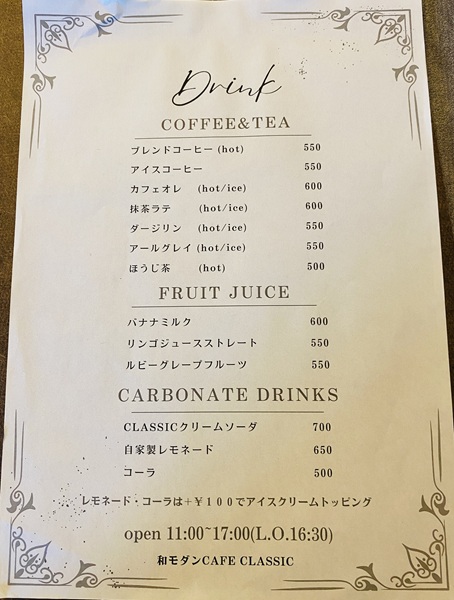 Drink
COFFEE&TEA
ブレンドコーヒー (hot) 550
アイスコーヒー 550
カフェオレ (hot/ice) 600
抹茶ラテ (hot/ice) 600
ダージリン (hot/ice) 550
アールグレイ (hot/ice) 550
ほうじ茶 (hot) 500
FRUIT JUICE
バナナミルク 600
リンゴジュースストレート 550
ルビーグレープフルーツ 550
CARBONATE DRINKS
CLASSICクリームソーダ 700
自家製レモネード 650
コーラ 500
レモネード・コーラは＋￥１００でアイスクリームトッピング
open 11:00~17:00(L.O.16:30)
和モダンCAFE CLASSIC